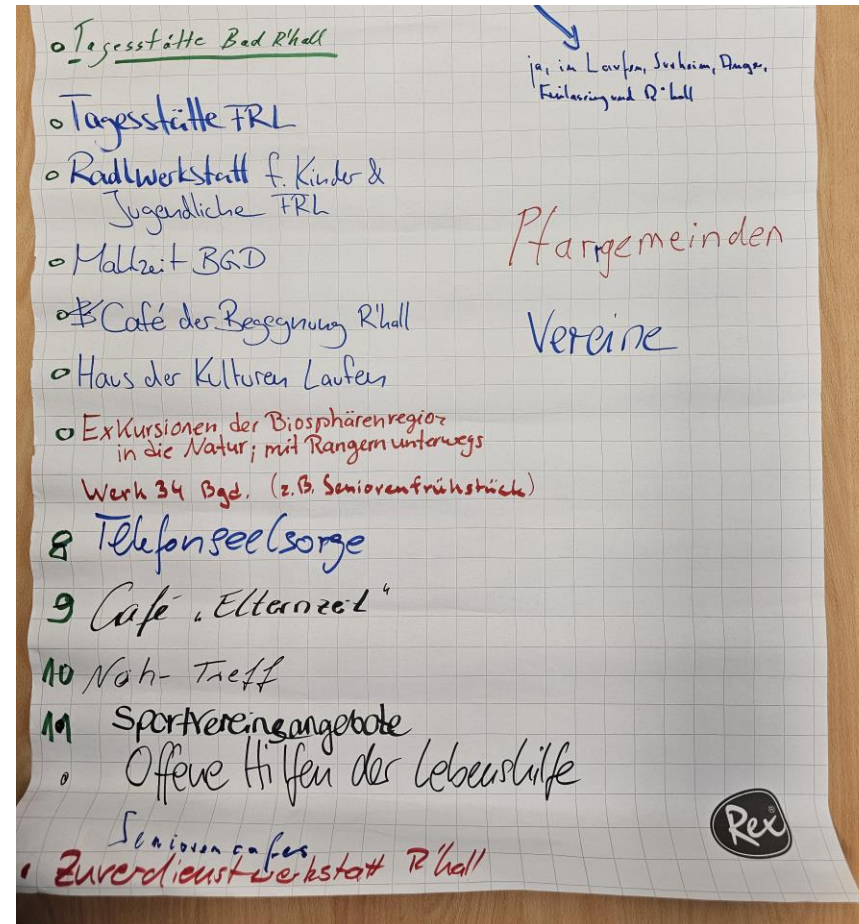 o Tagesstätte Bad R'hall
ja, in Laufen, Surheim, Anger,
Freilassing und R'hall
o Tagesstätte FRL
o Radlwerkstatt f. Kinder &
Jugendliche FRL
o Mahlzeit BGD
o Café der Begegnung R'hall
o Haus der Kulturen Laufen
o Exkursionen der Biosphärenregion
in die Natur; mit Rangern unterwegs
Werk 34 Bgd. (z.B. Seniorenfrühstück)
8 Telefonseelsorge
9 Café „Elternzeit"
10 Näh-Treff
11 Sportvereinsangebote
• Offene Hilfen der Lebenshilfe
Seniorencafes
• Zuverdienstwerkstatt R'hall
Pfarrgemeinden
Vereine
Rex